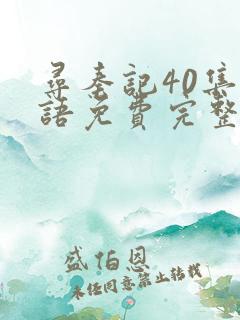 尋秦記40集
語免費完整
盛伯恩
未任同意禁止转载